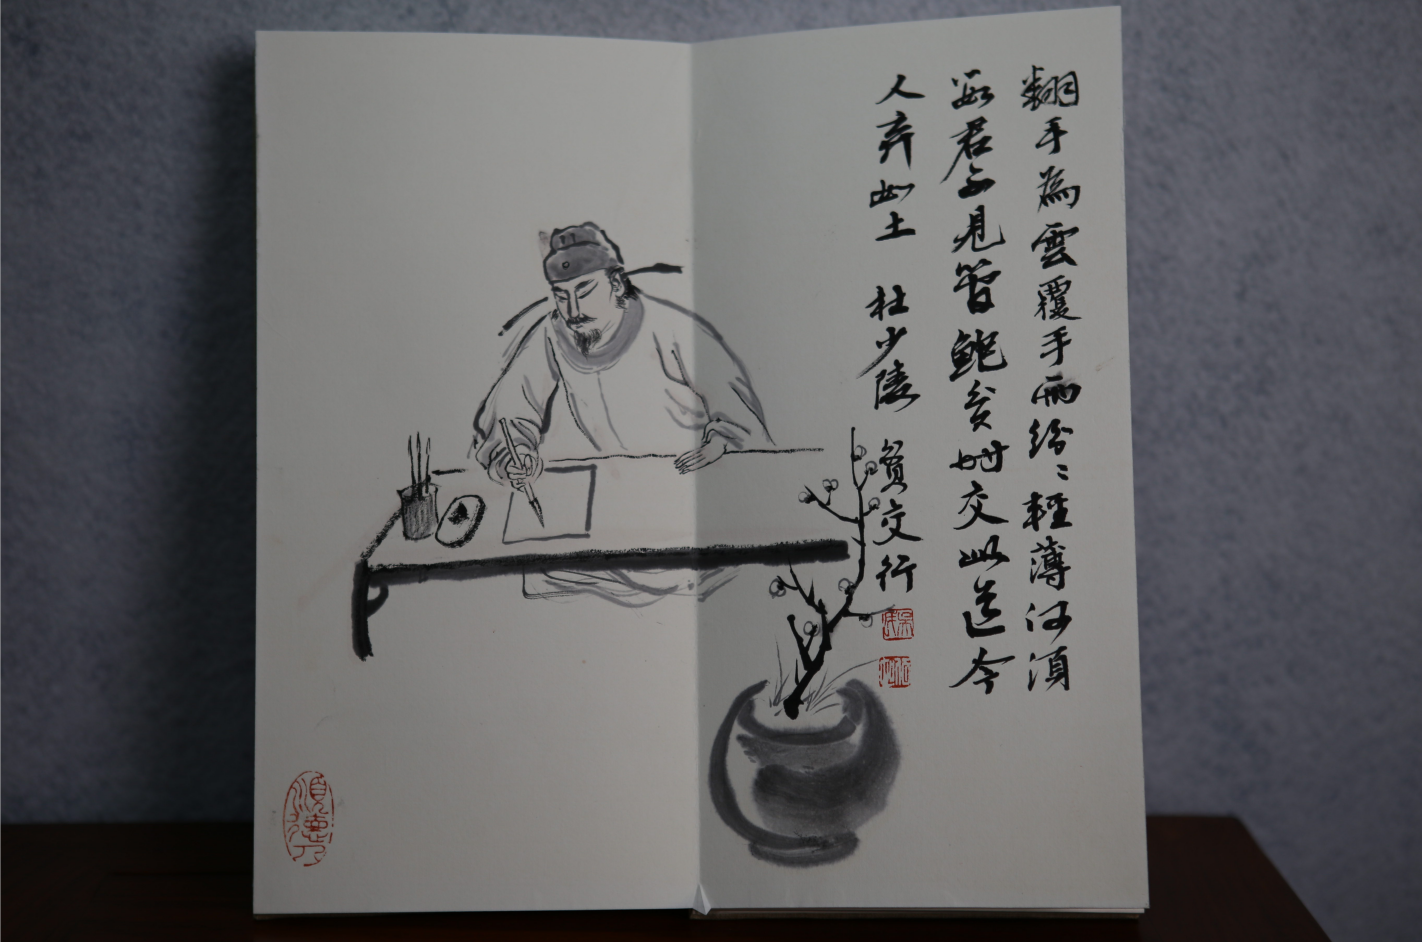 翻手為雲覆手雨紛〻輕薄何須
數君不見管鮑貧時交此道今
人弃如土 杜少陵 貧交行